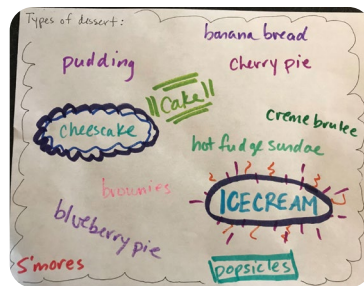 Types of dessert:
banana bread
pudding
cherry pie
Cake
cheescake
creme brulee
hot fudge sundae
brownies
ICECREAM
blueberry pie
S'mores
popsicles